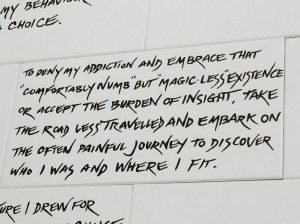 MY BEHAVIOUR
A CHOICE.
TO DENY MY ADDICTION AND EMBRACE THAT
"COMFORTABLY NUMB" BUT "MAGIC-LESS" EXISTENCE
OR ACCEPT THE BURDEN OF INSIGHT, TAKE
THE ROAD LESS TRAVELLED AND EMBARK ON
THE OFTEN PAINFUL JOURNEY TO DISCOVER
WHO I WAS AND WHERE I FIT.
I DREW FOR